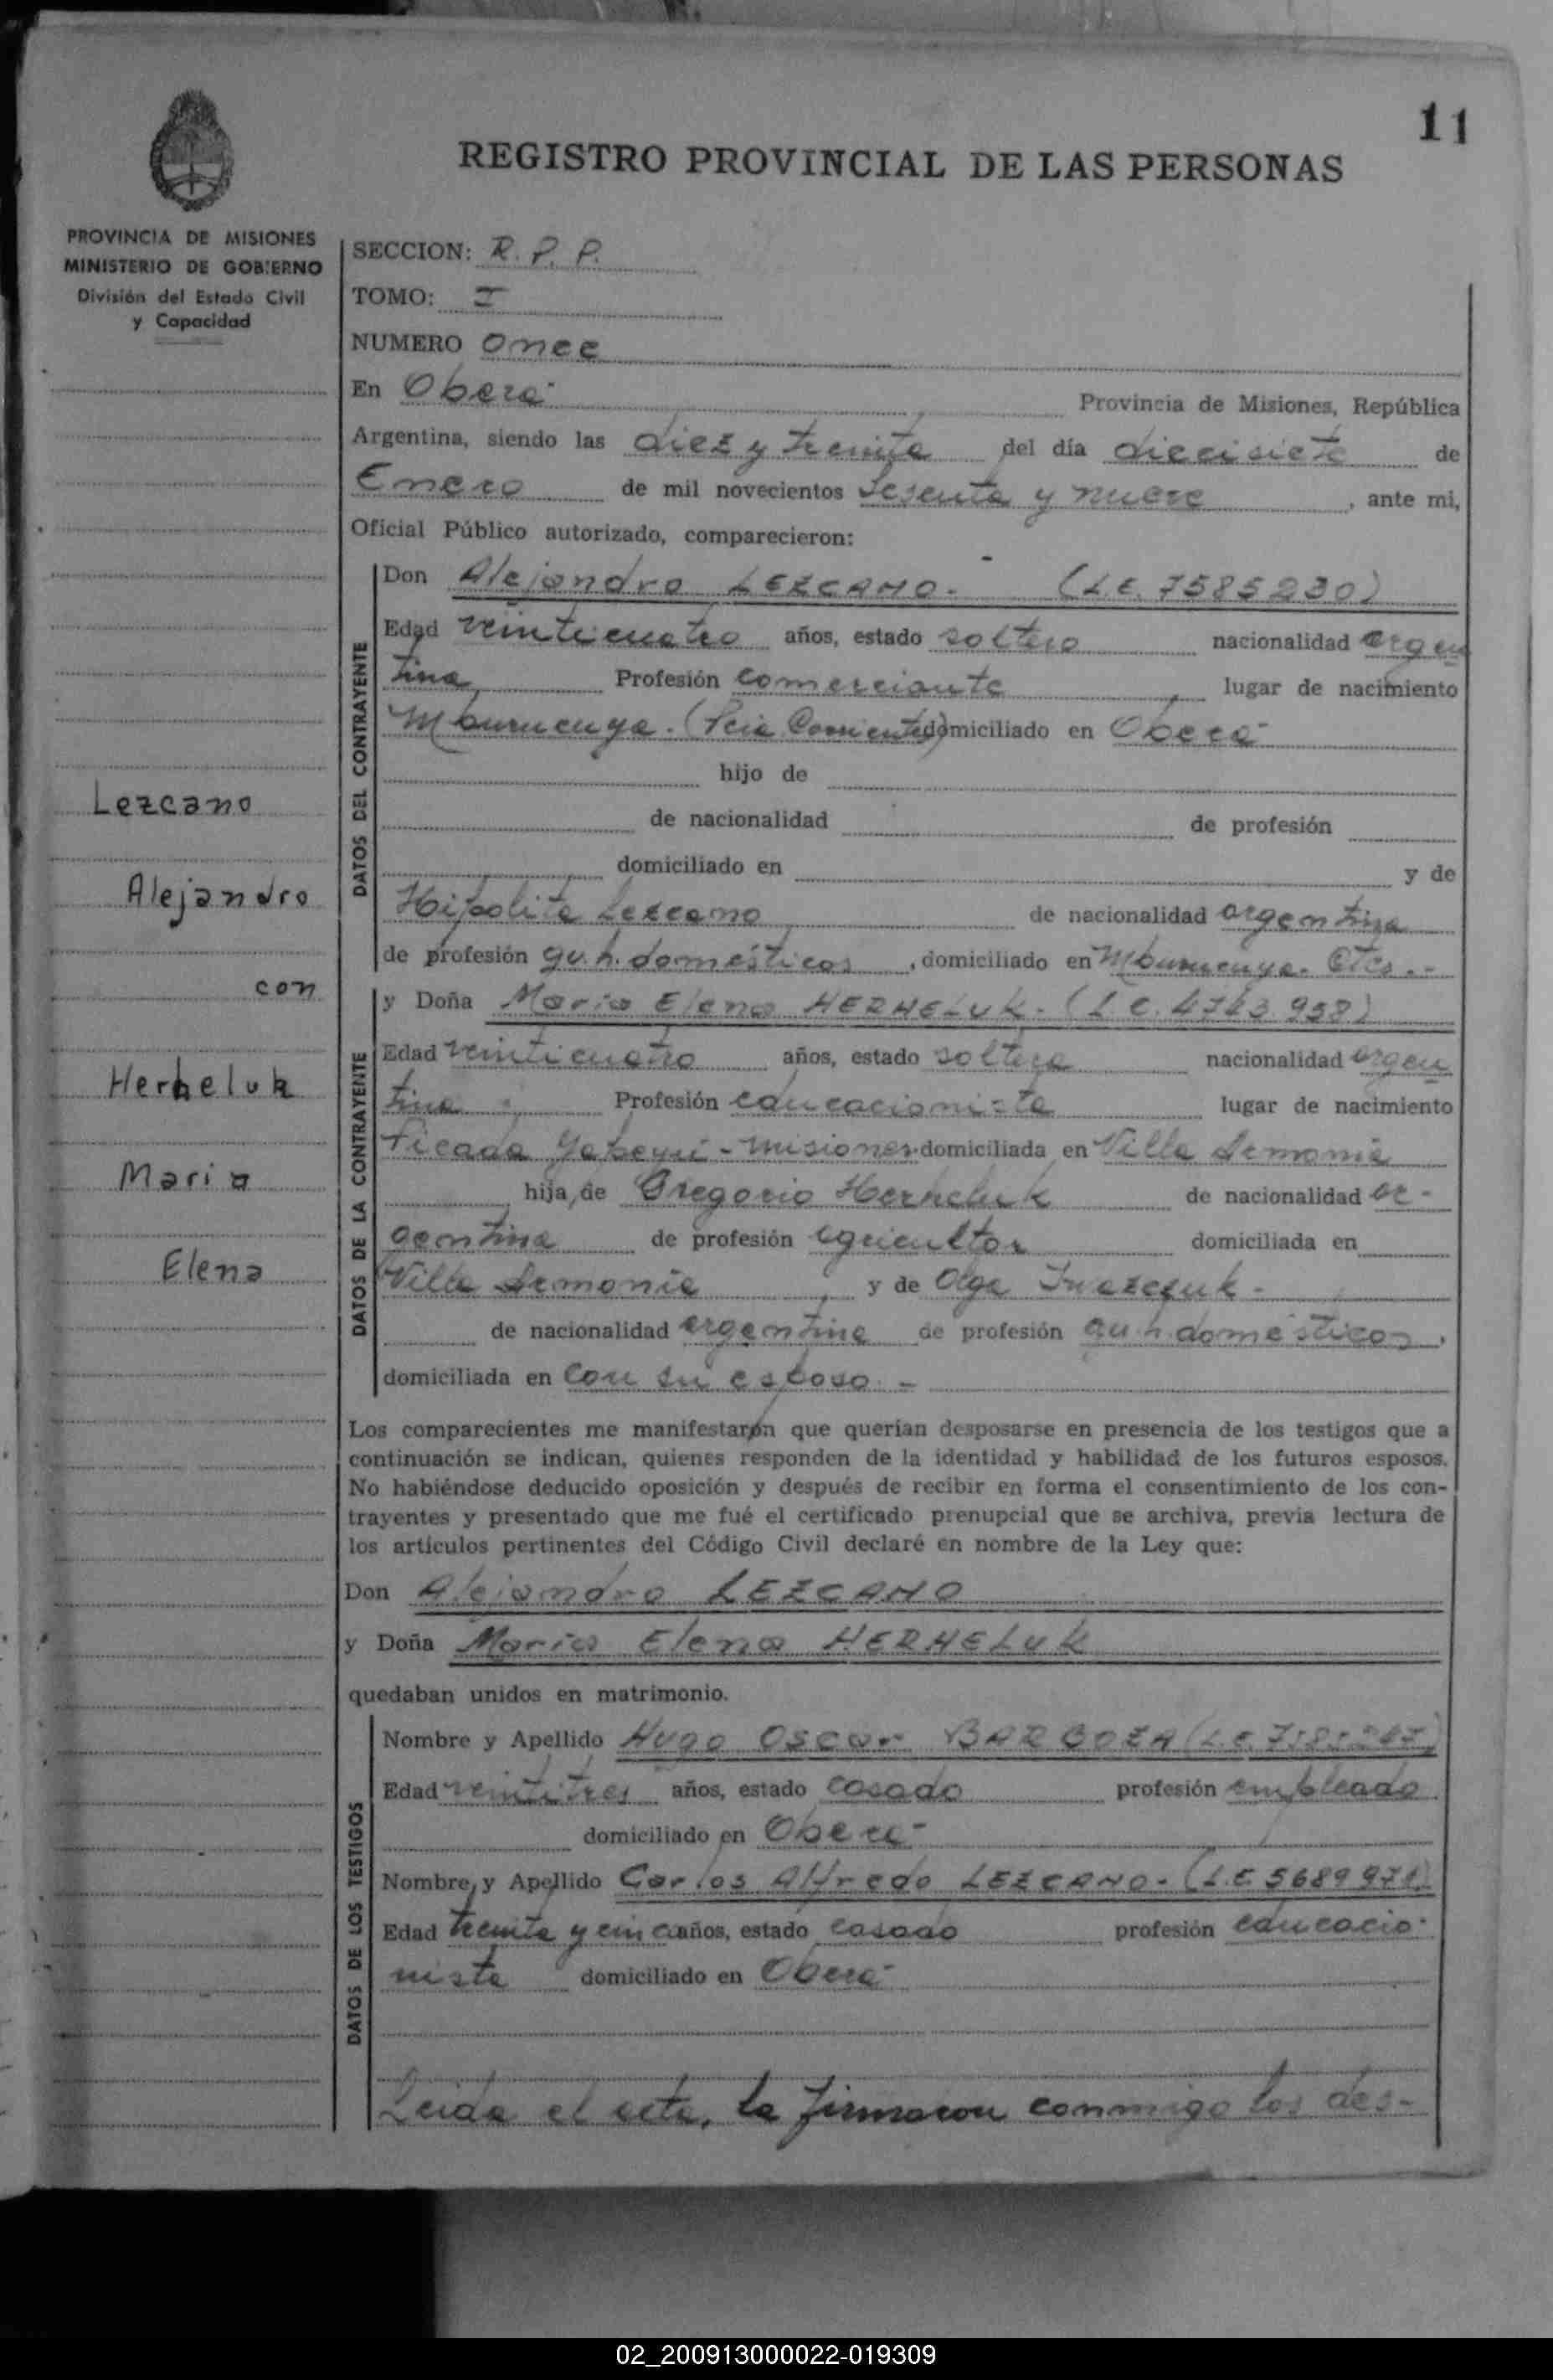 11
REGISTRO PROVINCIAL DE LAS PERSONAS
PROVINCIA DE MISIONES
MINISTERIO DE GOBIERNO
División del Estado Civil
y Capacidad
SECCION: R. P. P.
TOMO: I
NUMERO Once
En Oberá Provincia de Misiones, República
Argentina, siendo las diez y treinta del día diecisiete de
Enero de mil novecientos sesenta y nueve, ante mi,
Oficial Público autorizado, comparecieron:
DATOS DEL CONTRAYENTE
Don Alejandro LEZCANO.- (L.E. 7585230)
Edad veinticuatro años, estado soltero nacionalidad argen
tina, Profesión comerciante, lugar de nacimiento
Mburucuya. (Pcia Corrientes) domiciliado en Oberá
hijo de
de nacionalidad de profesión
domiciliado en y de
Hipolita Lezcano de nacionalidad argentina
de profesión qu. h. domésticos, domiciliado en Mburucuya. Ctes.-
Lezcano
Alejandro
con
Herheluk
Maria
Elena
DATOS DE LA CONTRAYENTE
y Doña Maria Elena HERHELUK. (L.C. 4743.958)
Edad veinticuatro años, estado soltera nacionalidad argen
tina Profesión educacionista lugar de nacimiento
Picada Yapeyú - Misiones domiciliada en Villa Armonia
hija de Gregorio Herheluk de nacionalidad ar-
gentina de profesión agricultor domiciliada en
Villa Armonia, y de Olga Iwazczuk-
de nacionalidad argentina de profesión qu. h. domésticos,
domiciliada en con su esposo.-
Los comparecientes me manifestaron que querían desposarse en presencia de los testigos que a
continuación se indican, quienes responden de la identidad y habilidad de los futuros esposos.
No habiéndose deducido oposición y después de recibir en forma el consentimiento de los con-
trayentes y presentado que me fué el certificado prenupcial que se archiva, previa lectura de
los artículos pertinentes del Código Civil declaré en nombre de la Ley que:
Don Alejandro LEZCANO
y Doña Maria Elena HERHELUK
quedaban unidos en matrimonio.
DATOS DE LOS TESTIGOS
Nombre y Apellido Hugo Oscar BARBOZA (L.E.
Edad veintitres años, estado casado profesión empleado
domiciliado en Oberá-
Nombre y Apellido Carlos Alfredo LEZCANO.- (L.E. 5689971)
Edad treinta y cinco años, estado casado profesión educacio-
nista domiciliado en Oberá-
Leida el acta, la firmaron conmigo los des-
02_200913000022-019309